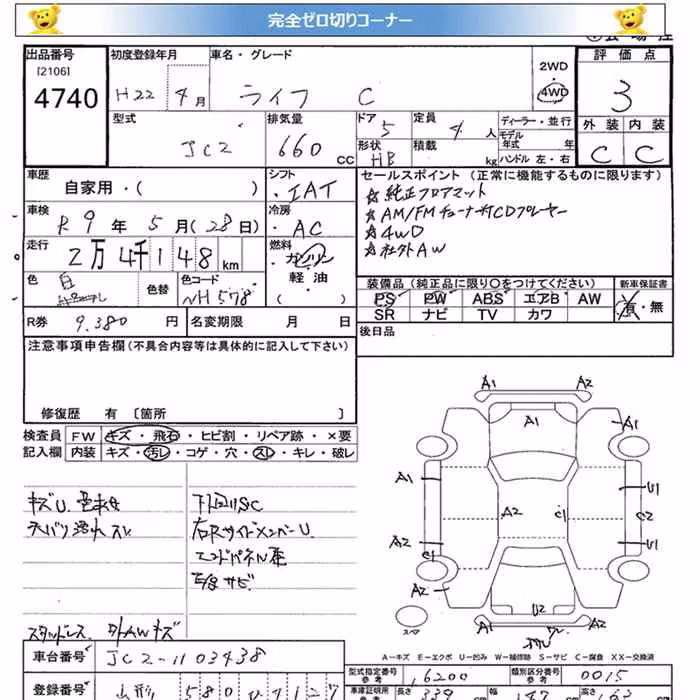 完全ゼロ切りコーナー
出品番号
[2106]
4740
初度登録年月
H22 4月
車名・グレード
ライフ C
2WD
4WD
評価点
3
外装 内装
C C
型式
JC2
排気量
660 CC
ドア 5
形状 HB
定員 4 人
積載 kg
ディーラー・並行
モデル年式 年式
ハンドル 左・右
車歴
自家用・( )
シフト
IAT
セールスポイント (正常に機能するものに限ります)
☆ 純正フロアマット
☆ AM/FMチューナ付CDプレーヤー
☆ 4WD
☆ 社外AW
車検
R9年 5月(28日)
冷房
AC
走行
2万4千148 km
燃料
ガソリン
軽油
( )
色
白
色替
色コード
NH578
装備品 (純正品に限り○をつけてください)
PS PW ABS エアB AW
SR ナビ TV カワ
新車保証書
有・無
R券 9.380 円
名変期限 月 日
後日品
注意事項申告欄 (不具合内容等は具体的に記入して下さい)
修復歴 有 〔箇所 〕
検査員
記入欄
FW キズ・飛石・ヒビ割・リペア跡・×要
内装 キズ・汚レ・コゲ・穴・スレ・キレ・破レ
キズU.
下回りSC
右Rサイドメンバー U.
エンドパネル
サビ
スタッドレス. 外AWキズ
A1 A2
A1
A1
A1
U1
A2
C1
C2
A2
C1
U1
A2
A2
U2
スペア
A−キズ E−エクボ U−凹み W−補修跡 S−サビ C−腐食 XX−交換済
車台番号 JC2-1103438
型式指定番号 16200
類別区分番号 0015
参考
登録番号 山形 580
車庫証明用
長さ 339
幅 147
高さ